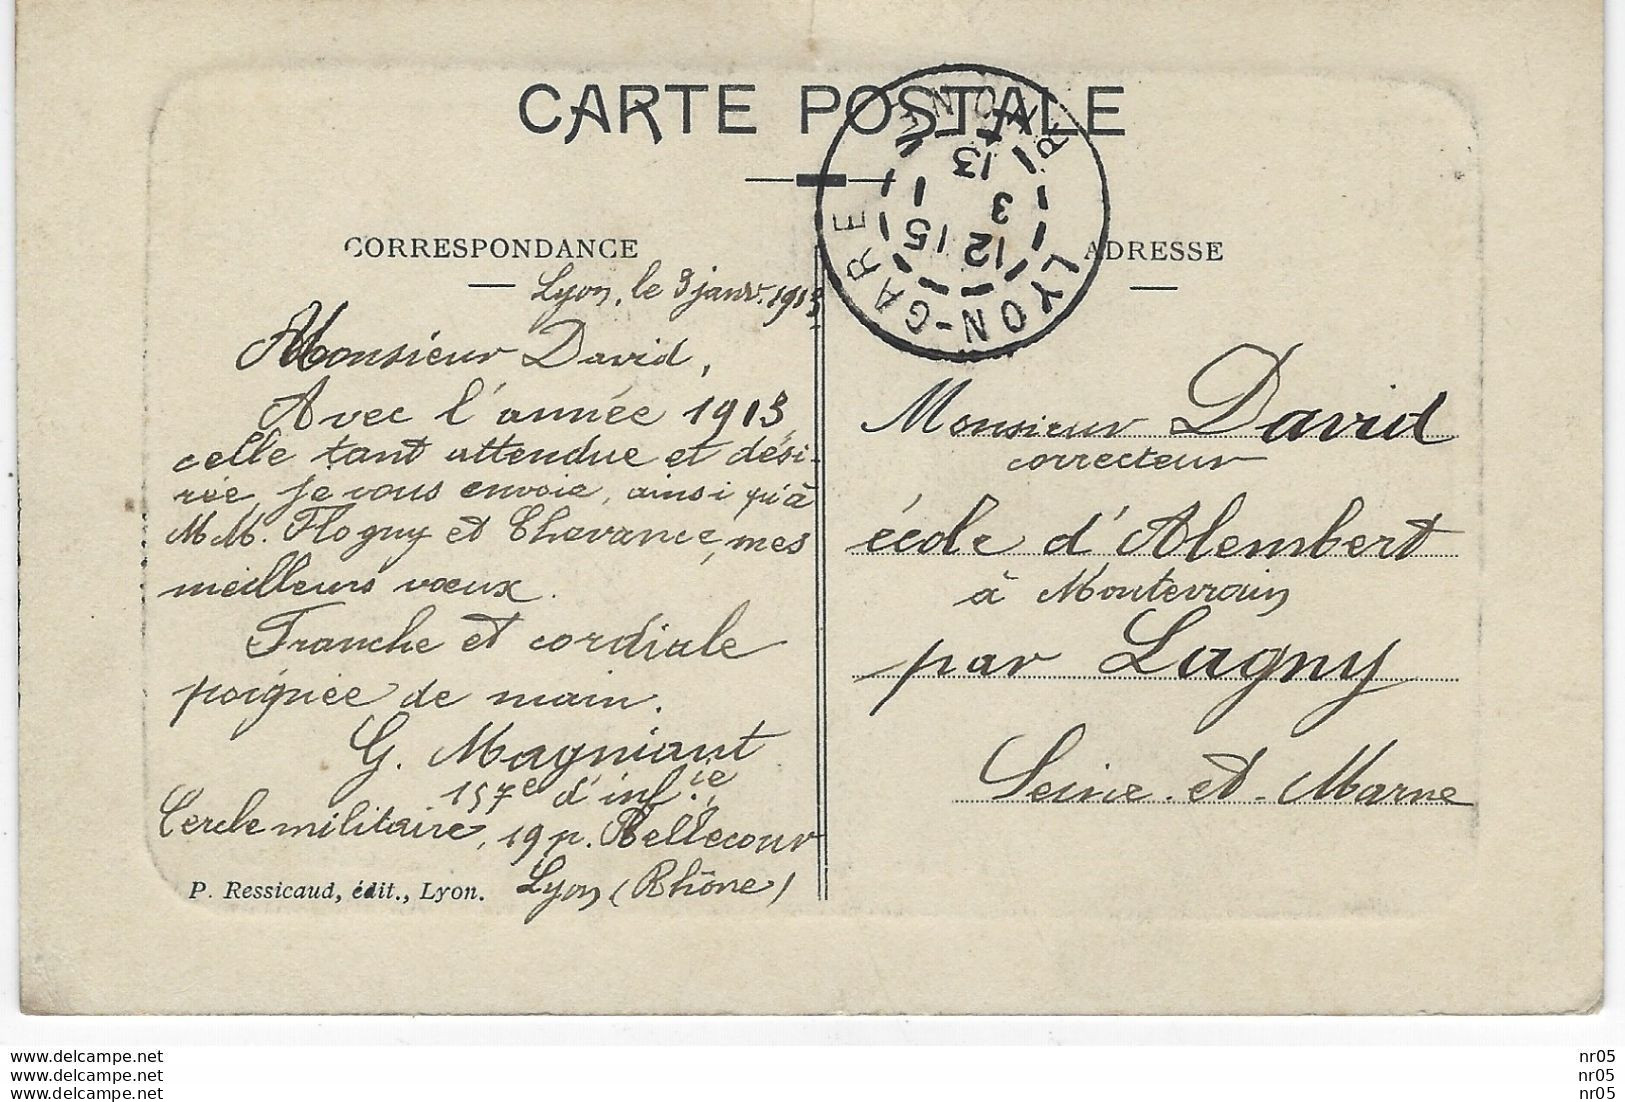 CARTE POSTALE
CORRESPONDANCE
Lyon, le 3 janv. 1913
Monsieur David,
Avec l'année 1913,
celle tant attendue et dési-
rée, je vous envoie, ainsi qu'à
MM. Flogny et Chevance, mes
meilleurs vœux.
Franche et cordiale
poignée de main.
G. Magniant
157e d'inf.ie
Cercle militaire, 19 p. Bellecour
Lyon (Rhône)
P. Ressicaud, édit., Lyon.
LYON-GARE
RHONE
13
3
12
15
ADRESSE
Monsieur David
correcteur
école d'Alembert
à Montevrain
par Lagny
Seine-et-Marne
www.delcampe.net
www.delcampe.net
www.delcampe.net
nr05
nr05
nr05